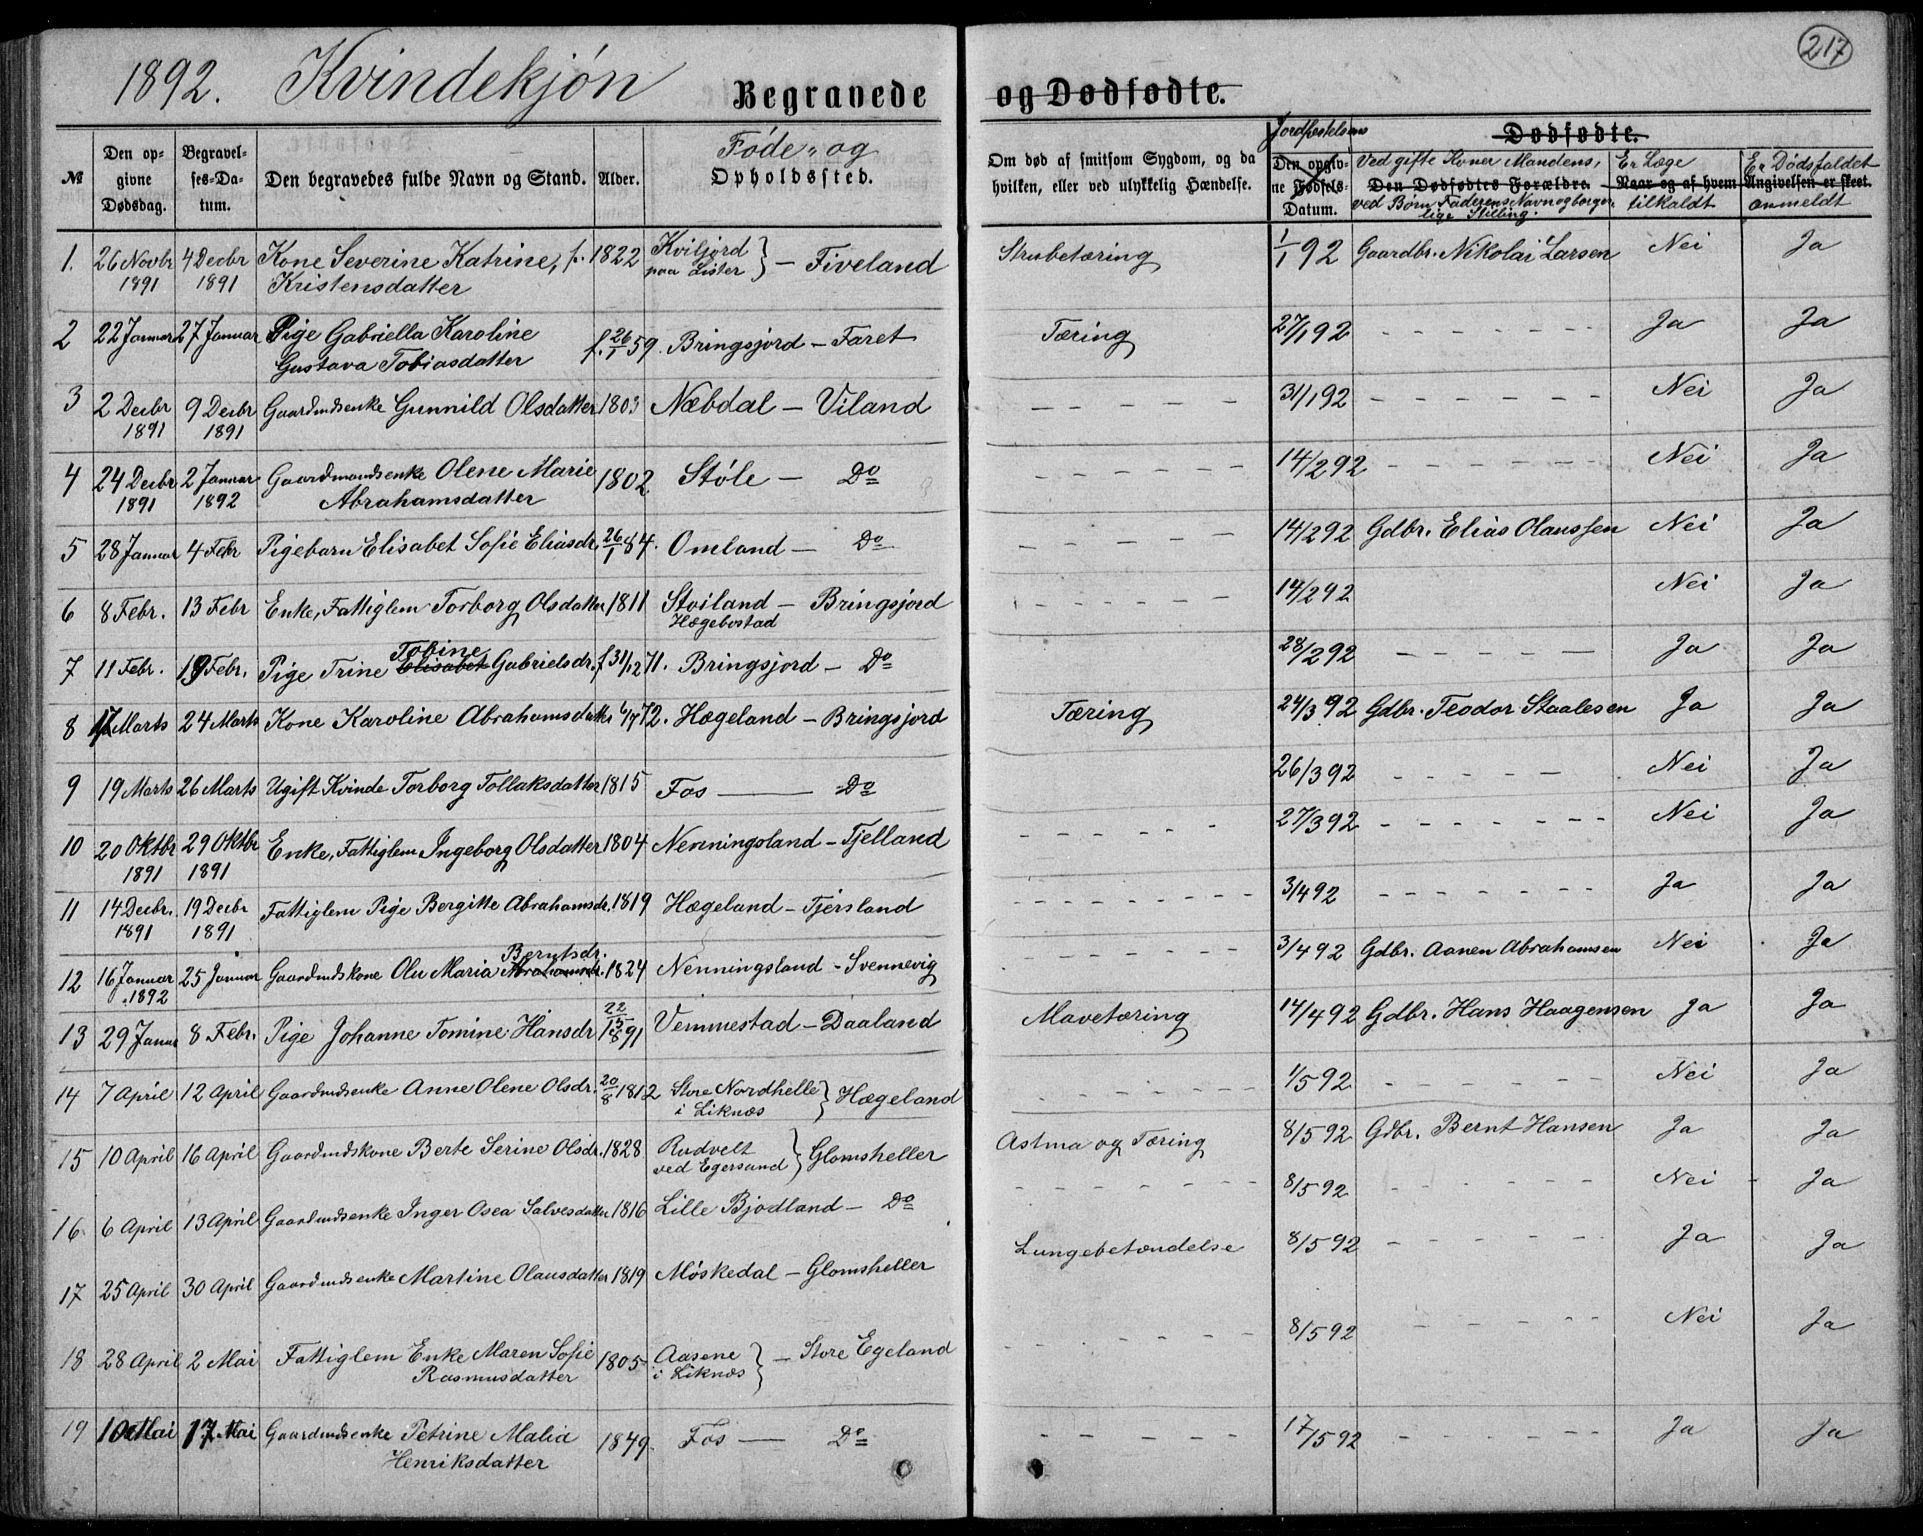 217
1892. Kvindekjön Begravede og Dødfødte.
№ Den opgivne Dødsdag. Begravelses-Datum. Den begravedes fulde Navn og Stand. Alder. Føde- og Opholdssted. Om død af smitsom Sygdom, og da hvilken, eller ved ulykkelig Hændelse. Jordfæstelsens Den opgivne Fødsels-Datum. Dødfødte. Ved gifte Koner Mandens, Den Dødfødtes Forældre. ved Børn Faderens Navn og borgerlige Stilling. Er Læge Naar og af hvem tilkaldt Er Dødsfaldet Angivelsen er skeet. anmeldt
1. 26 Novbr 1891 4 Decbr 1891 Kone Severine Katrine, f. Kristensdatter 1822 Kviljord paa Lister } — Fiveland Strubetæring 1/1 92 Gaardbr. Nikolai Larsen Nei Ja
2 22 Januar 27 Januar Pige Gabriella Karoline Gustava Tobiasdatter f. 26/1 59. Bringsjord — Faret Tæring 27/1 92 - - - - - - Ja Ja
3 2 Decbr 1891 9 Decbr 1891 Gaardmdsenke Gunnild Olsdatter 1803 Næbdal — Viland - - - - - 31/1 92 - - - - - - Nei Ja
4 24 Decbr 1891 2 Januar 1892 Gaardmandsenke Olene Marie Abrahamsdatter 1802 Støle — Do - - - - - - 14/2 92 - - - - - - Nei Ja
5 28 Januar 4 Febr Pigebarn Elisabet Sofie Eliasdr. 26/1 84. Omland — Do - - - - - 14/2 92 Gdbr. Elias Olaussen Nei Ja
6 8 Febr. 13 Febr Enke, Fattiglem Torborg Olsdatter 1811 Stoiland Hægebostad — Bringsjord - - - - - - 14/2 92 Nei Ja
7 11 Febr. 19 Febr. Pige Trine Elisabet Tobine Gabrielsdr. f 31/12 71. Bringsjord — Do 28/2 92 - - - - - Ja Ja
8 17 Marts 24 Marts Kone Karoline Abrahamsdatter 6/4 72. Hægeland — Bringsjord Tæring 24/3 92 Gdbr. Teodor Staalesen Ja Ja
9 19 Marts 26 Marts Ugift Kvinde Torborg Tollaksdatter 1815 Fos — Do 26/3 92 - - - - - Nei Ja
10 20 Oktbr 1891 29 Oktbr 1891 Enke, Fattiglem Ingeborg Olsdatter 1804 Nenningsland — Tjelland - - - - - - 27/3 92 - - - - - - Nei Ja
11 14 Decbr. 1891 19 Decbr 1891 Fattiglem Pige Bergitte Abrahamsdr. 1819 Hægeland — Tjersland - - - - - - - 3/4 92 - - - - - - Ja Ja
12 16 Januar 1892 25 Januar Gaardmdskone Olu Maria Abrahamsdr. Berntsdr. 1824 Nenningsland - Svennevig - - - - - - 3/4 92 Gdbr. Aanen Abrahamsen Nei Ja
13 29 Januar 8 Febr. Pige Johanne Tomine Hansdr 22/5 1891 Vemmestad — Daaland Mavetæring 14/4 92 Gdbr. Hans Haagensen Ja Ja
14 7 April 12 April Gaardmdsenke Anne Olene Olsdr. 20/8 1812 Store Nordhelle i Liknes } Hægeland - - - - - 1/5 92 - - - - - - Nei Ja
15 10 April 16 April Gaardmdskone Berte Serine Olsdr. 1828 Rudvelt ved Egersund } Glomsheller Astma og Tæring 8/5 92 Gdbr. Bernt Hansen Ja Ja
16. 6 April 13 April Gaardmdsenke Inger Osea Salvesdatter 1816 Lille Bjodland — Do - - - - - - - 8/5 92 - - - - - - Nei - Ja
17 25 April 30 April Gaardmdsenke Martine Olausdatter 1819 Møskedal — Glomsheller Lungebetændelse 8/5 92 - - - - - - Ja Ja
18 28 April 2 Mai Fattiglem Enke Maren Sofie Rasmusdatter 1805 Aasene i Liknes } — Store Egeland - - - - - 8/5 92 - - - - - - Nei Ja
19 10 Mai 17 Mai Gaardmdsenke Petrine Malia Henriksdatter 1849. Fos — Do - - - - - - 17/5 92 - - - - - - Ja Ja